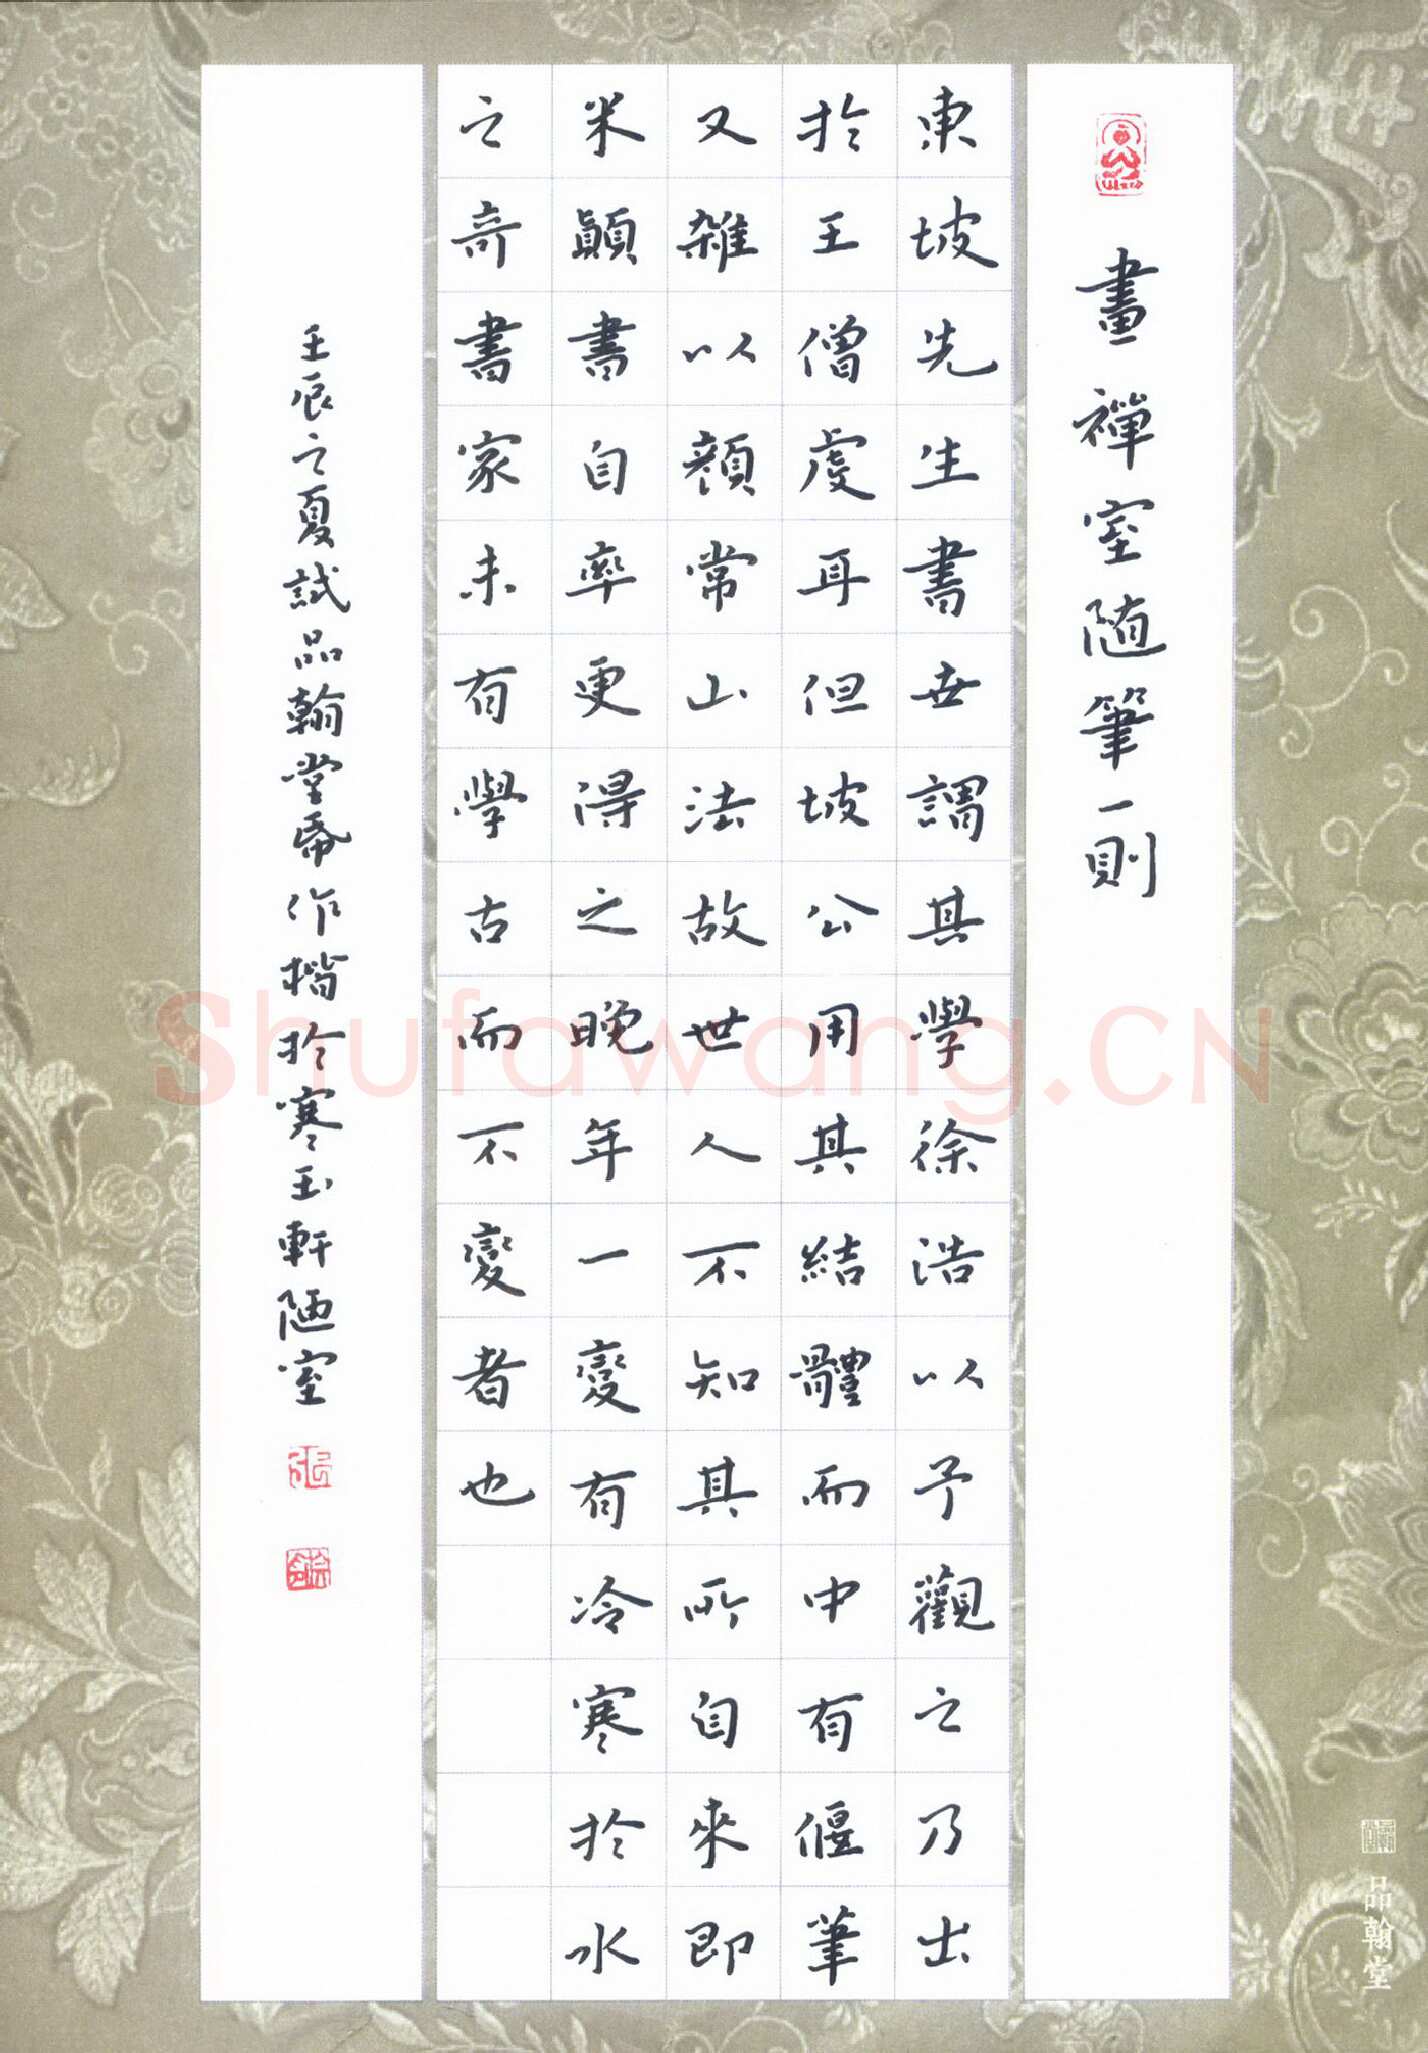 畫禪室隨筆一則
東坡先生書世謂其學徐浩以予觀之乃出
於王僧虔耳但坡公用其結體而中有偃筆
又雜以顏常山法故世人不知其所自來即
米顛書自率更得之晚年一變有冷寒於水
之奇書家未有學古而不變者也
壬辰之夏試品翰堂帋作楷於寒玉軒陋室
品翰堂
Shufawang.CN